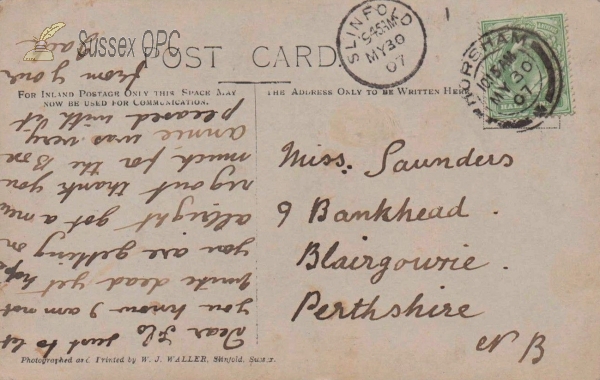 Sussex OPC
POST CARD
FOR INLAND POSTAGE ONLY THIS SPACE MAY
NOW BE USED FOR COMMUNICATION.
THE ADDRESS ONLY TO BE WRITTEN HERE
SLINFOLD
MY 30
07
HORSHAM
10.15 AM
MY 30
07
HALF
Miss. Saunders
9 Bankhead.
Blairgowrie.
Perthshire
N B
Dear Flo just to let
you know I am not
quite dead yet hope
you are getting on
alright got a new
rig out thank you
much for the Box
annie was very
pleased with it
from your
Photographed and Printed by W. J. WALLER, Slinfold, Sussex.